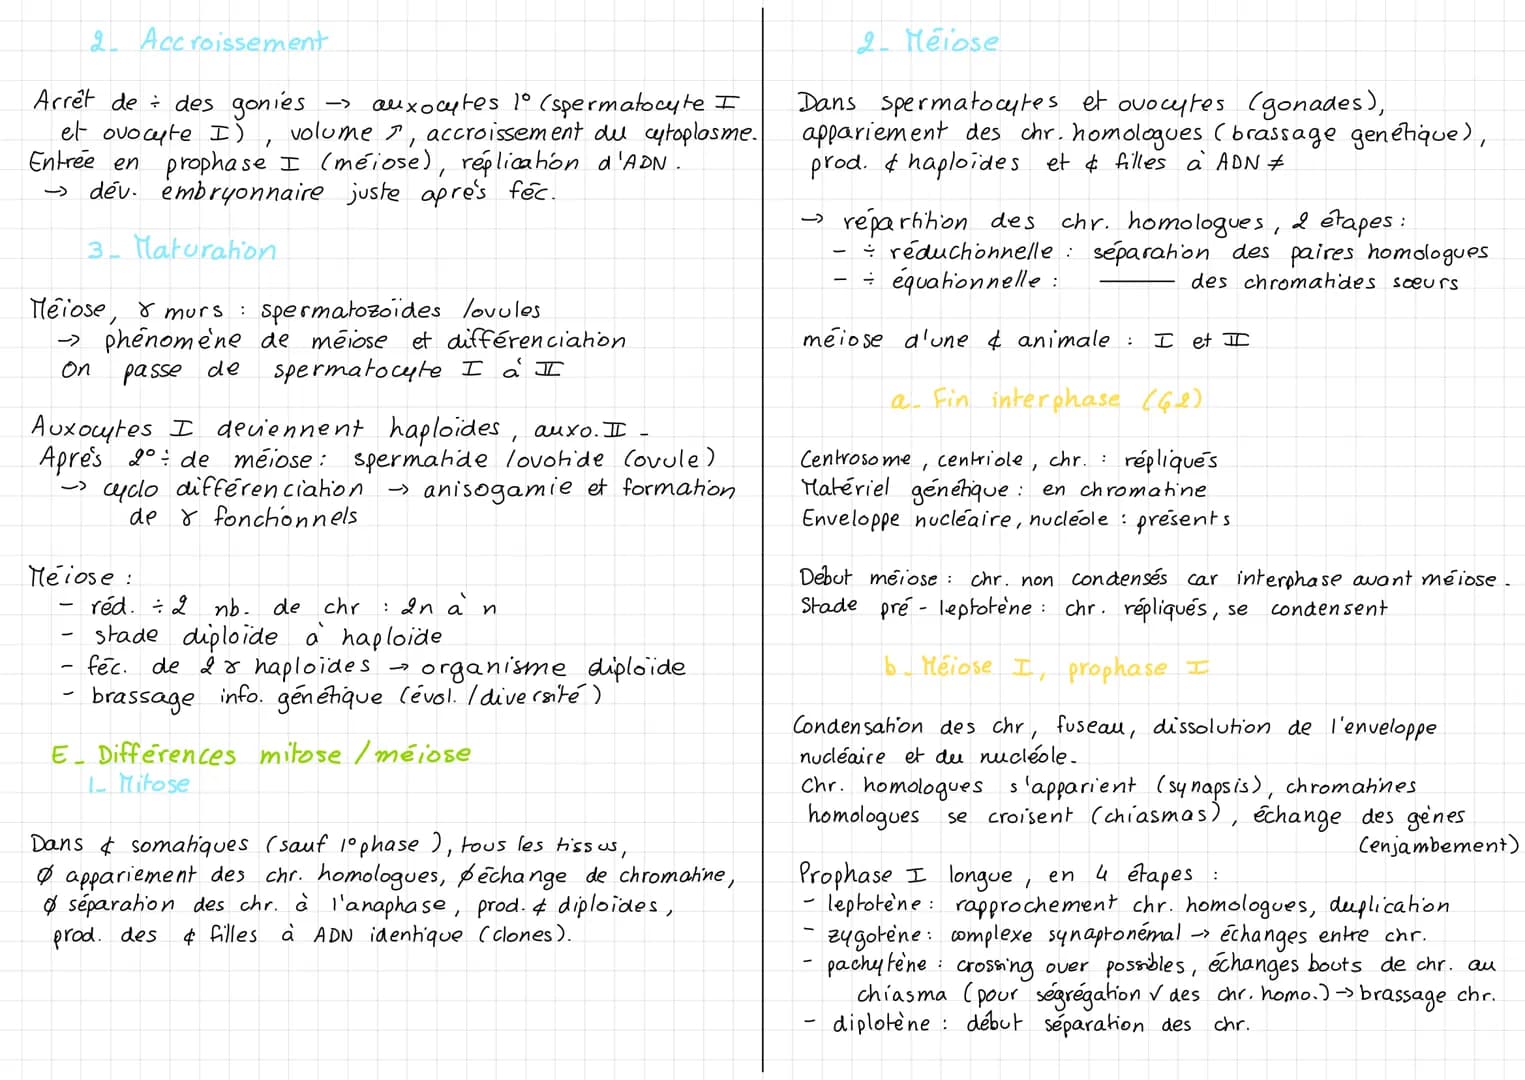 2_ Accroissement
Arrêt de ÷ des gonies → auxocytes 1° (spermatocyte I
et ovocyte I), volume ↗, accroissement du cytoplasme.
Entrée en prophase I (méiose), réplication d'ADN.
→ dév. embryonnaire juste après féc.
3_ Maturation
Méiose, ɣ murs : spermatozoïdes /ovules
→ phénomène de méiose et différenciation
On passe de spermatocyte I à II
Auxocytes I deviennent haploïdes, auxo. II -
Après 2° ÷ de méiose : spermatide /ovotide (ovule)
→ cyclo différenciation → anisogamie et formation
de ɣ fonctionnels
Méiose :
- réd. ÷2 nb. de chr : 2n à n
- stade diploïde à haploïde
- féc. de 2 ɣ haploïdes → organisme diploïde
- brassage info. génétique (évol. /diversité)
E_ Différences mitose /méiose
1_ Mitose
Dans ¢ somatiques (sauf 1° phase), tous les tissus,
Ø appariement des chr. homologues, Ø échange de chromatine,
Ø séparation des chr. à l'anaphase, prod. ¢ diploïdes,
prod. des ¢ filles à ADN identique (clones).
2_ Méiose
Dans spermatocytes et ovocytes (gonades),
appariement des chr. homologues (brassage génétique),
prod. ¢ haploïdes et ¢ filles à ADN ≠
→ répartition des chr. homologues, 2 étapes :
- ÷ réductionnelle : séparation des paires homologues
- ÷ équationnelle : ——— des chromatides sœurs
méiose d'une ¢ animale : I et II
a_ Fin interphase (G2)
Centrosome, centriole, chr. : répliqués
Matériel génétique : en chromatine
Enveloppe nucléaire, nucléole : présents
Début méiose : chr. non condensés car interphase avant méiose.
Stade pré-leptotène : chr. répliqués, se condensent
b_ Méiose I, prophase I
Condensation des chr, fuseau, dissolution de l'enveloppe
nucléaire et du nucléole.
Chr. homologues s'apparient (synapsis), chromatines
homologues se croisent (chiasmas), échange des gènes
(enjambement)
Prophase I longue, en 4 étapes :
- leptotène : rapprochement chr. homologues, duplication
- zygotène : complexe synaptonémal → échanges entre chr.
- pachytène : crossing over possibles, échanges bouts de chr. au
chiasma (pour ségrégation √ des chr. homo.) → brassage chr.
- diplotène : début séparation des chr.